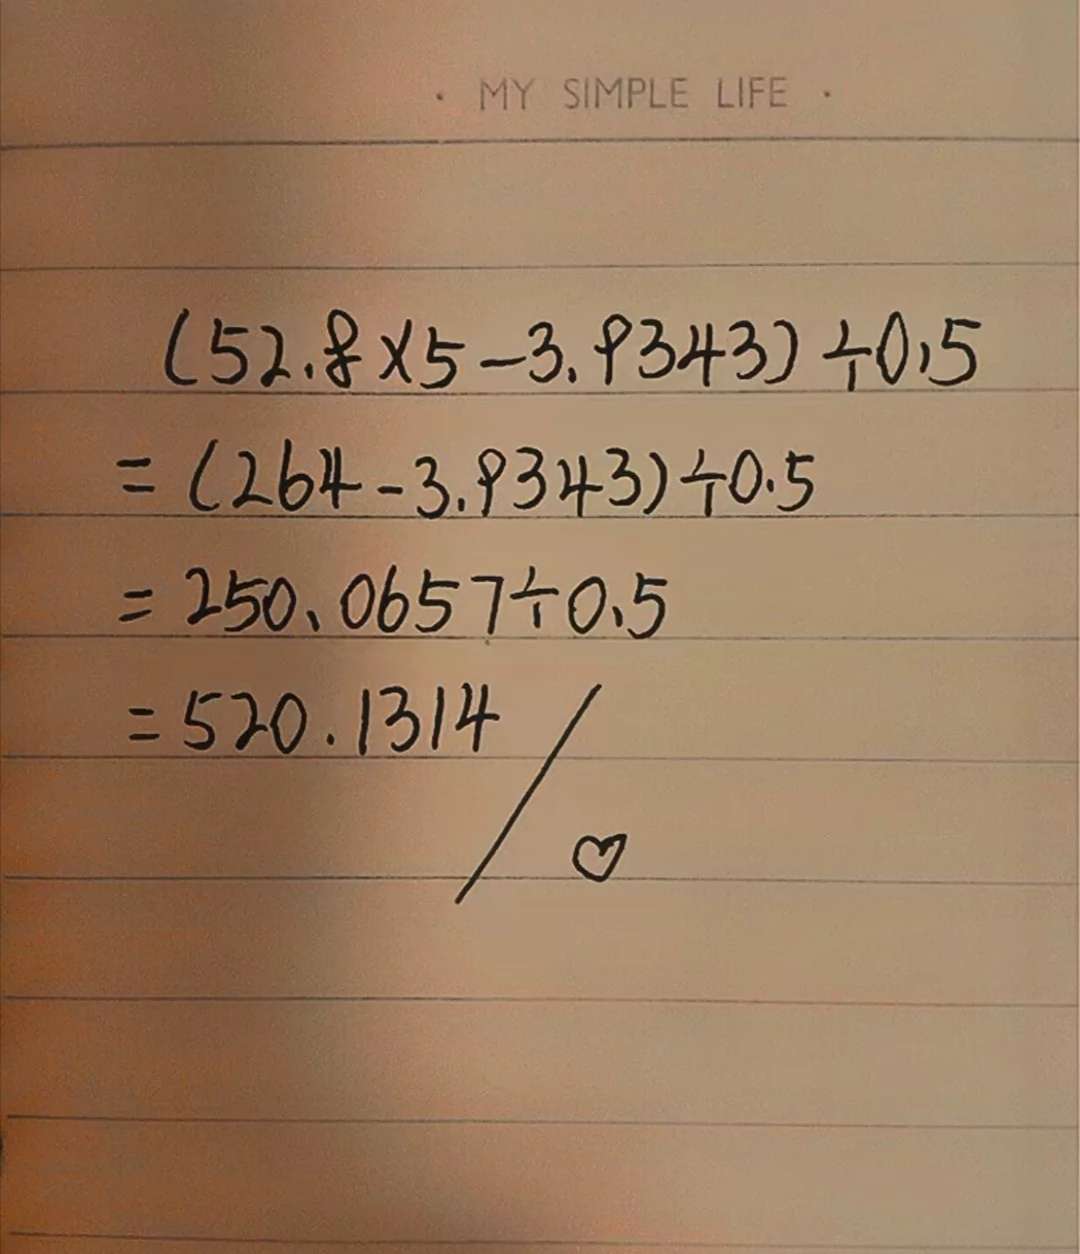 · MY SIMPLE LIFE ·
(52.8×5-3.9343)÷0.5
=(264-3.9343)÷0.5
=250.0657÷0.5
=520.1314
♡